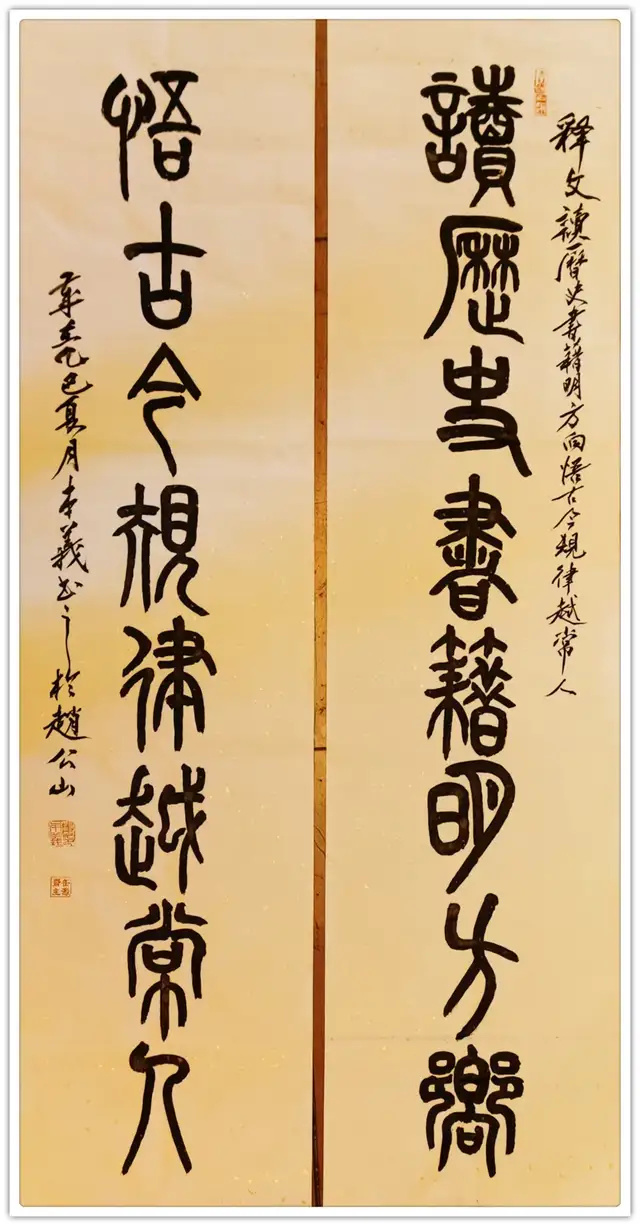 释文讀曆史書籍明方向悟古今规律越常人
讀歷史書籍明方嚮
悟古今規律越常人
乙巳夏月本義书之於趙公山